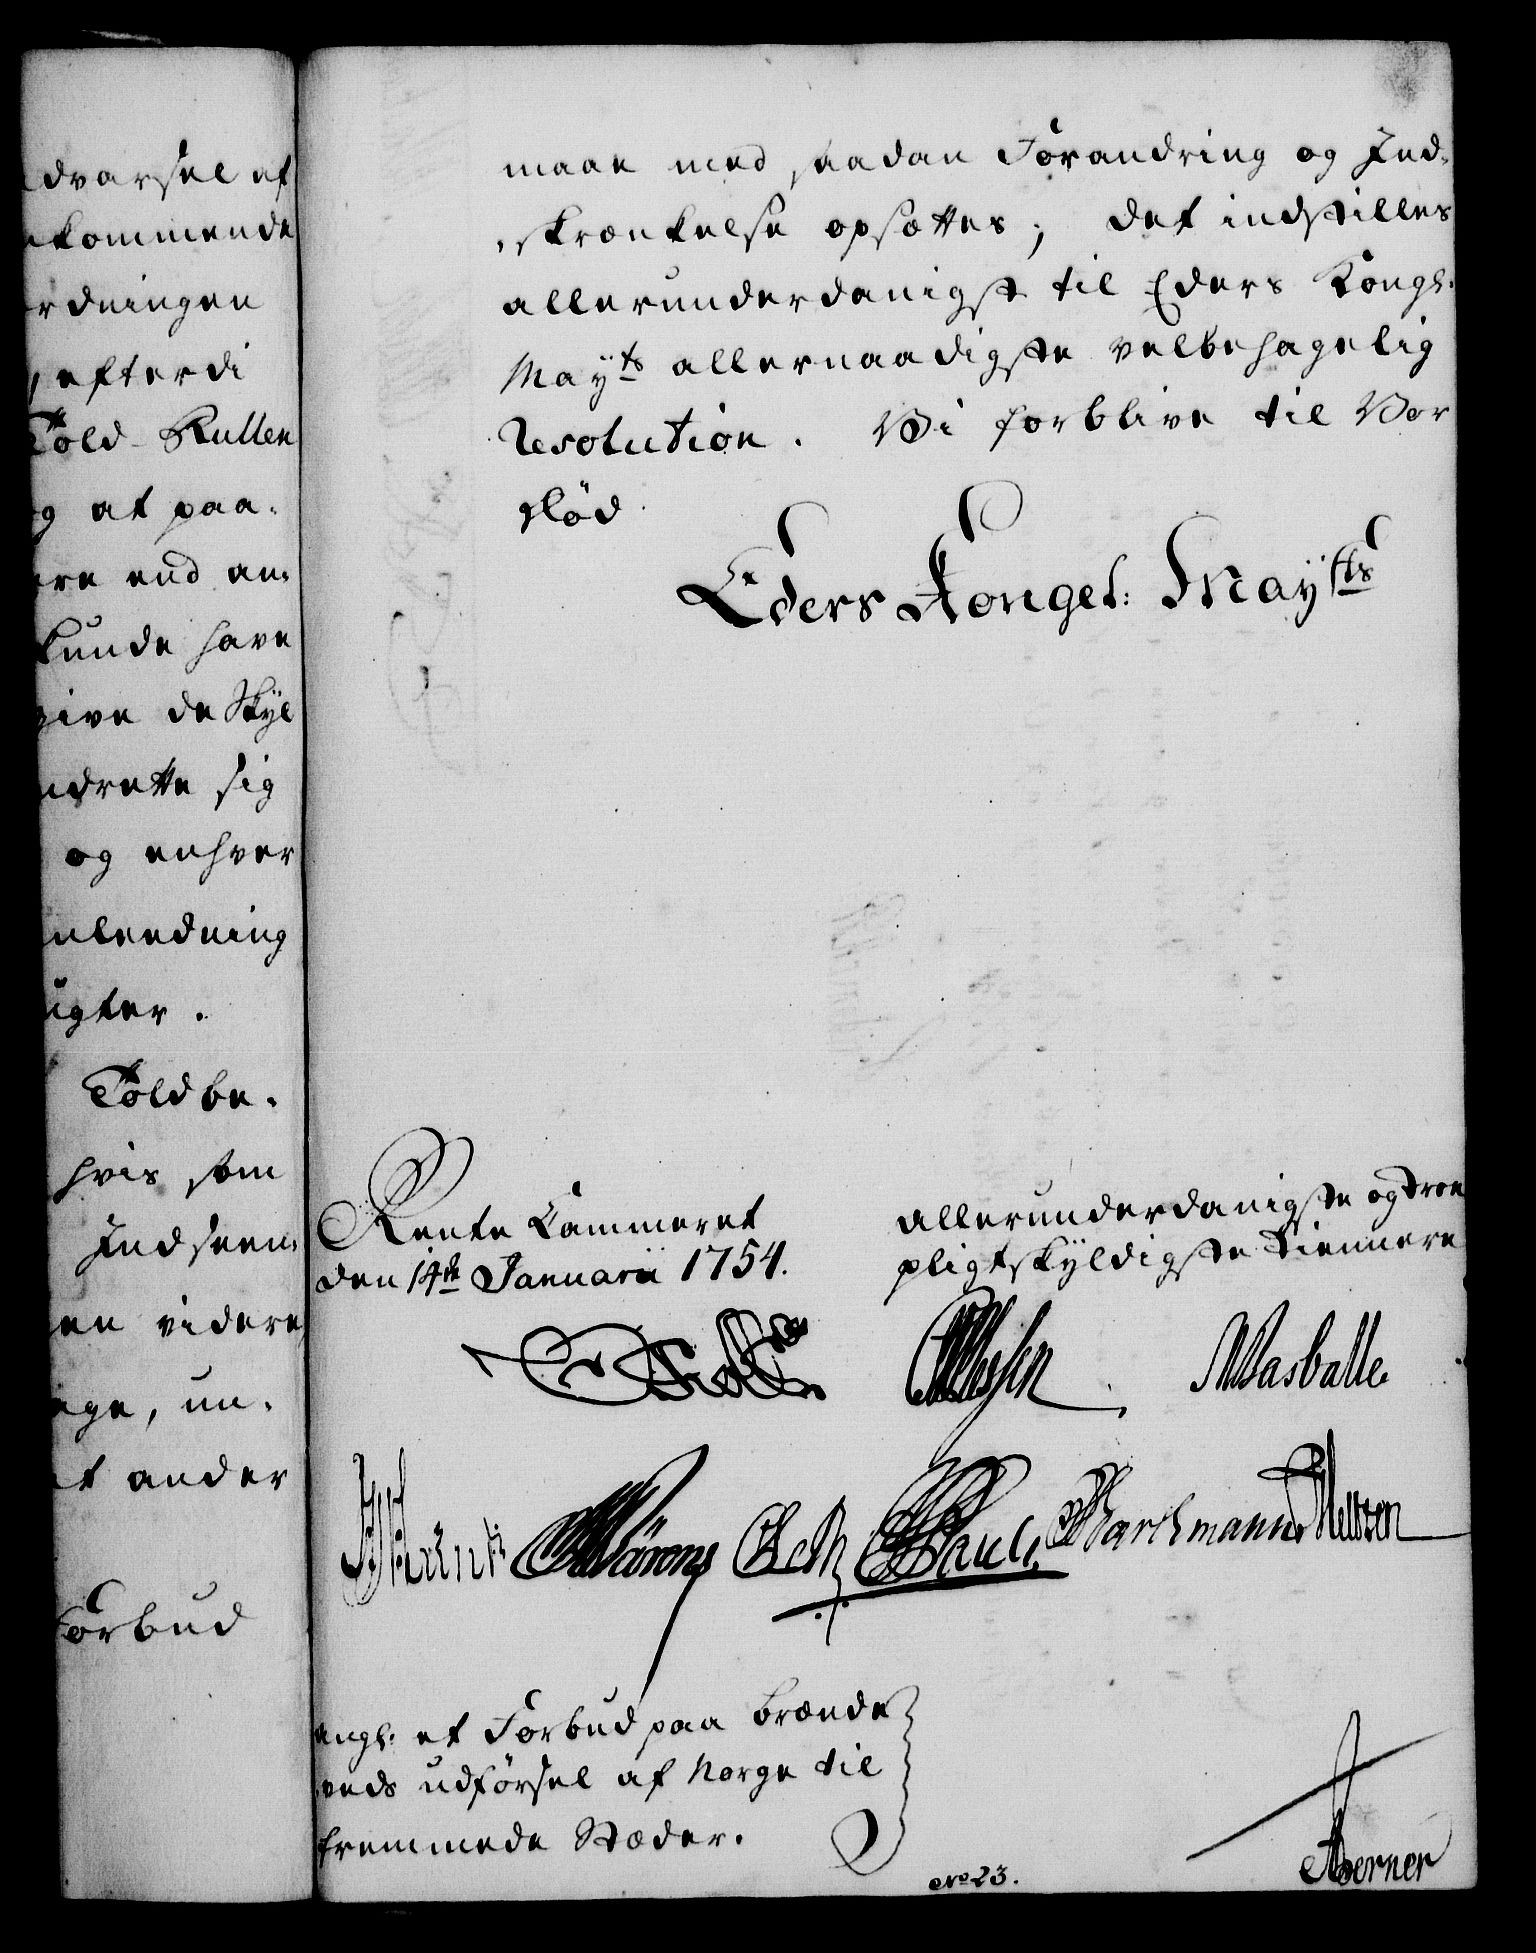 dvarsel af
kommende
rdningen
efterdi
Told-Rullen
og at paa-
re end an-
kunde have
give de Skyl
ndrette sig
og enhver
nleedning
ugter.
Toldbe-
hvis som
Indseen-
en videre
ege, un-
t ander
Forbud
maae med saadan Forandring og Ind-
skrænkelse opsættes; det indstilles
allerunderdanigst til Eders Kongl.
Mayts allernaadigste velbehagelig
Resolution. Vi forblive til Vor
Død
Eders Kongel: Maytts
Rente Cammeret
den 14de Januarii 1754.
allerunderdanigste og troe
pligtskyldigste Tiennere
Masballe
Pauli
Barchmann
Berner
angl: et Forbud paa Brænde
veds udførsel af Norge til
fremmede Stæder.
No 23.